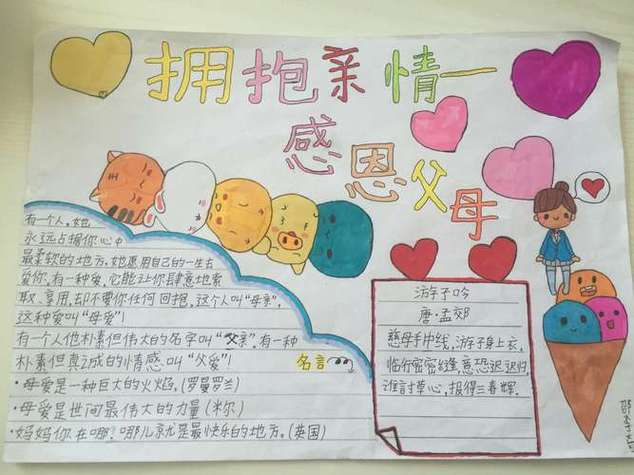 拥抱亲情一
感恩父母
有一个人，她
永远占据你心中
最柔软的地方，她愿用自己的一生去
爱你，有一种爱，它能让你肆意地索
取、享用，却不要你任何回报，这个人叫“母亲”，
这种爱叫“母爱”！
有一个人他朴素但伟大的名字叫“父亲”，有一种
朴素但真诚的情感叫“父爱”！
名言
·母爱是一种巨大的火焰。（罗曼罗兰）
·母爱是世间最伟大的力量（米尔）
·妈妈你在哪？哪儿就是最快乐的地方。（英国）
游子吟
唐·孟郊
慈母手中线，游子身上衣，
临行密密缝，意恐迟迟归，
谁言寸草心，报得三春辉。